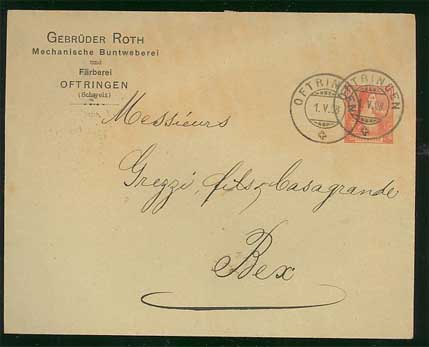 GEBRÜDER ROTH
Mechanische Buntweberei
und
Färberei
OFTRINGEN
(Schweiz)
OFTRINGEN
1.V.98
OFTRINGEN
V.98
Messieurs
Grezzi, fils, Casagrande
Bex